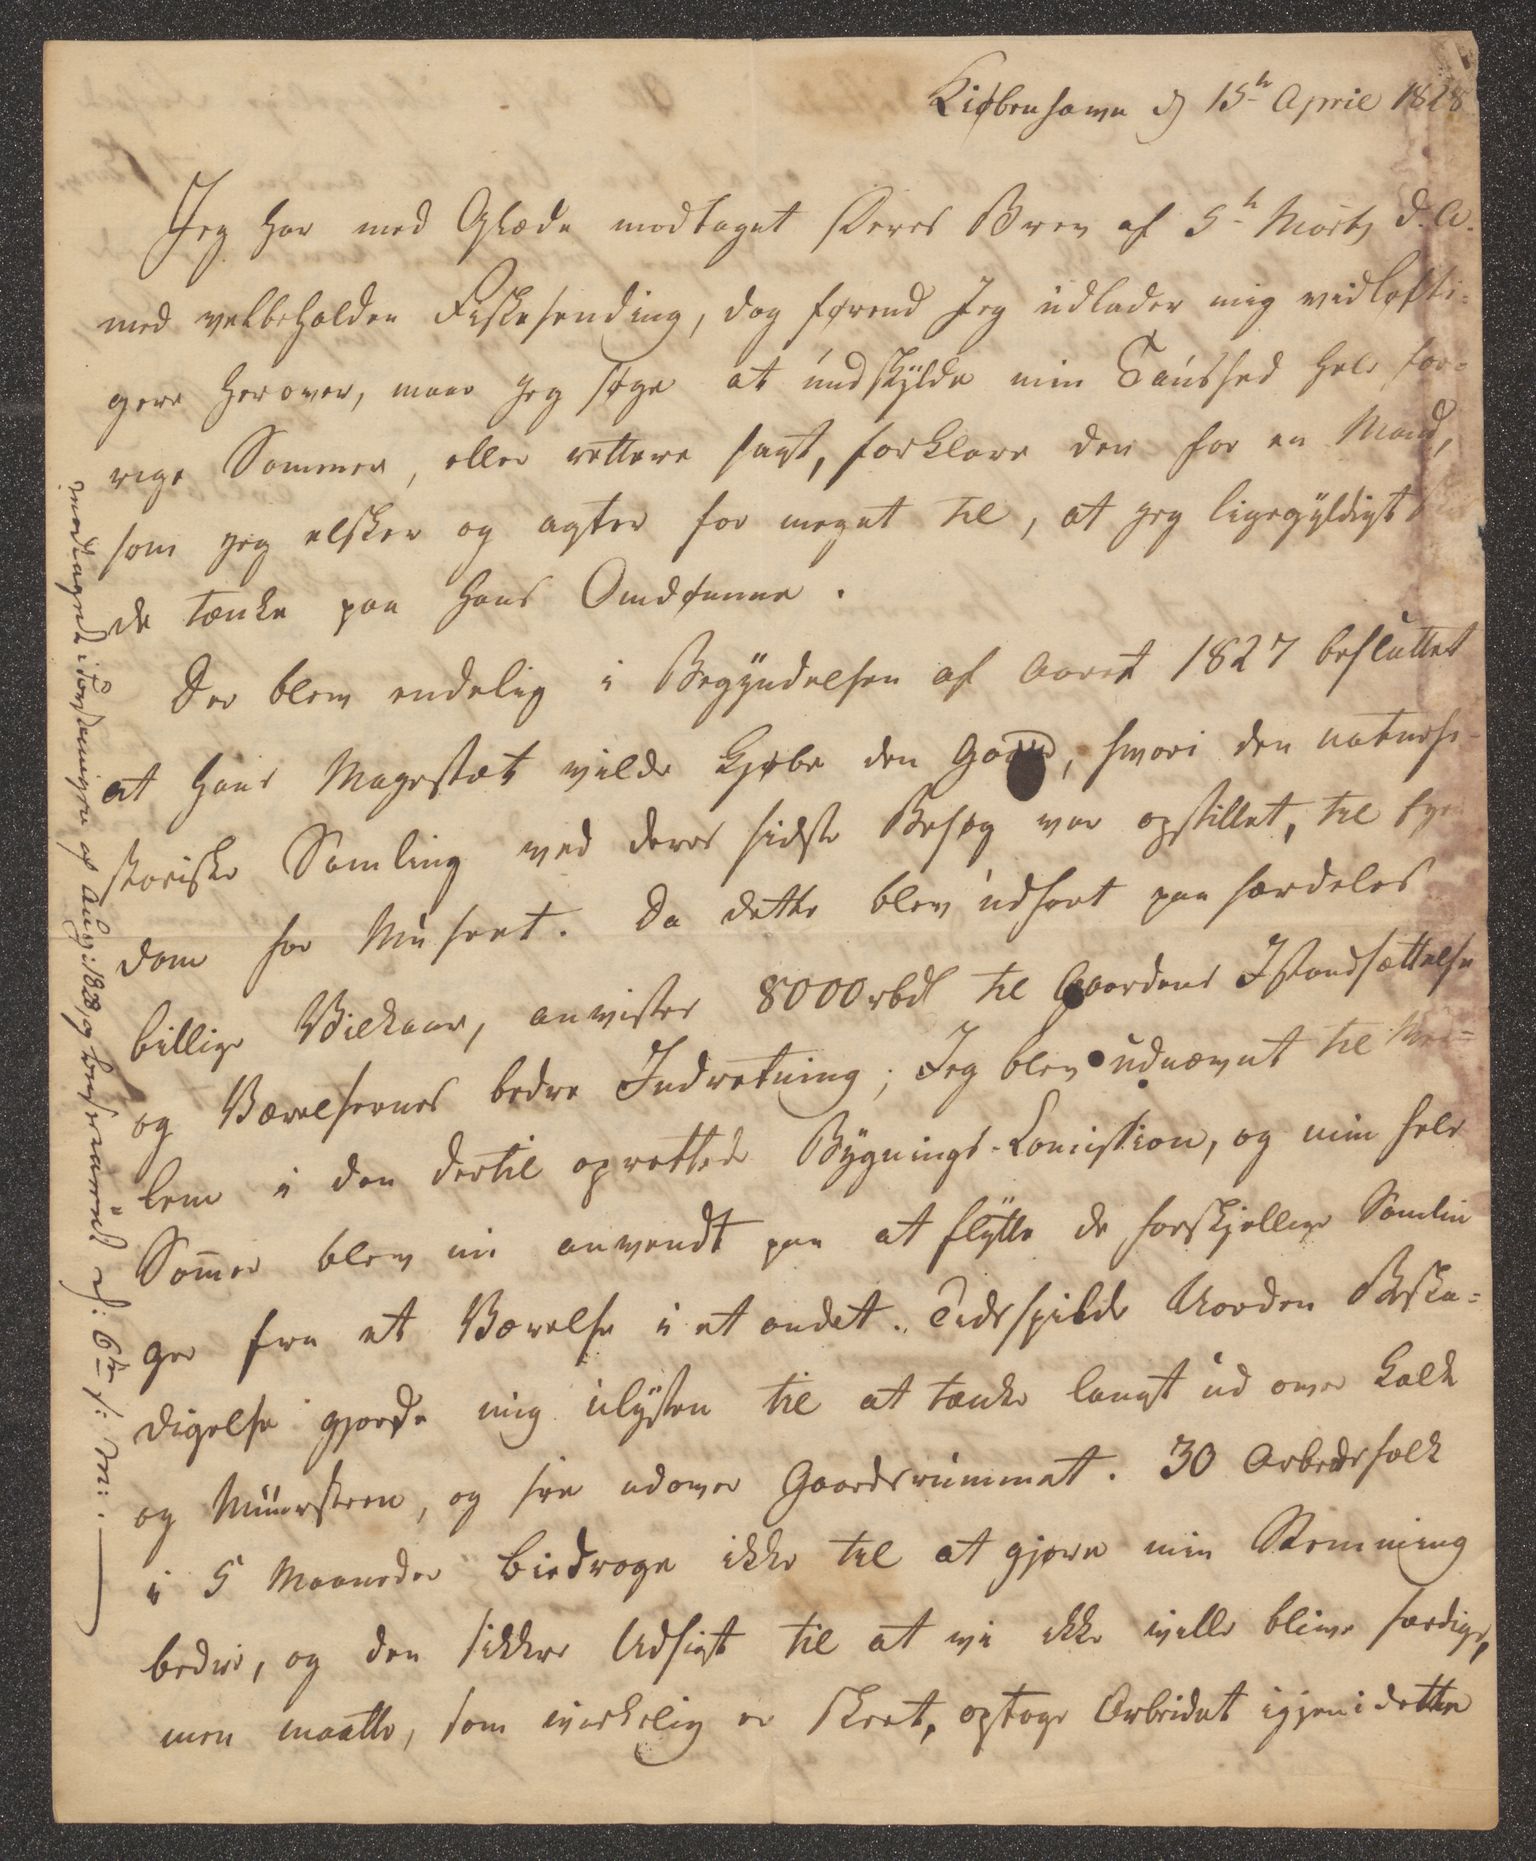 Kiøbenhavn d 15de April 1828
Jeg har med Glæde modtaget Deres Brev af 5te Martz d. A.
med velbeholden Fiskesending, dog førend Jeg udlader mig vidløfti-
gere herover, maae jeg søge at undskylde min Taushed hele for-
rige Sommer, eller rettere sagt, forklare den for en Mand,
som jeg elsker og agter for meget til, at jeg ligegyldigt
de tænke paa hans Omdømme.
Der blev endelig i Begyndelsen af Aaret 1827 besluttet
at Hans Magestæt vilde kjøbe den Gaard, hvori den naturhi-
storiske Samling ved deres sidste Besøg var opstillet, til Eyen
dom for Museet. Da dette blev udført paa særdeles
billige Vilkaar, anvistes 8000 rbdl til Gaardens Istandsættelse
og Værelsernes bedre Indretning; Jeg blev udnævnt til Med=
lem i den dertil oprettede Bygnings-Comission, og min hele
Somer blev nu anvendt paa at flytte de forskjellige Samlin
ger fra et Værelse i et andet. Tidsspilde Uorden Beska=
digelse gjorde mig ulysten til at tænke langt ud over Kalk
og Muursteen, og see udover Gaardsrummet. 30 Arbeidsfolk
i 5 Maaneder bidroge ikke til at gjøre min Stemning
bedre, og den sikkre Udsigt til at vi ikke ville blive færdige,
men maatte, som virkelig er skeet, optage Arbeidet igjen i dette
modtaget i Begyndelsen af Aug: 1828, og besvaret d: 6te s: M: